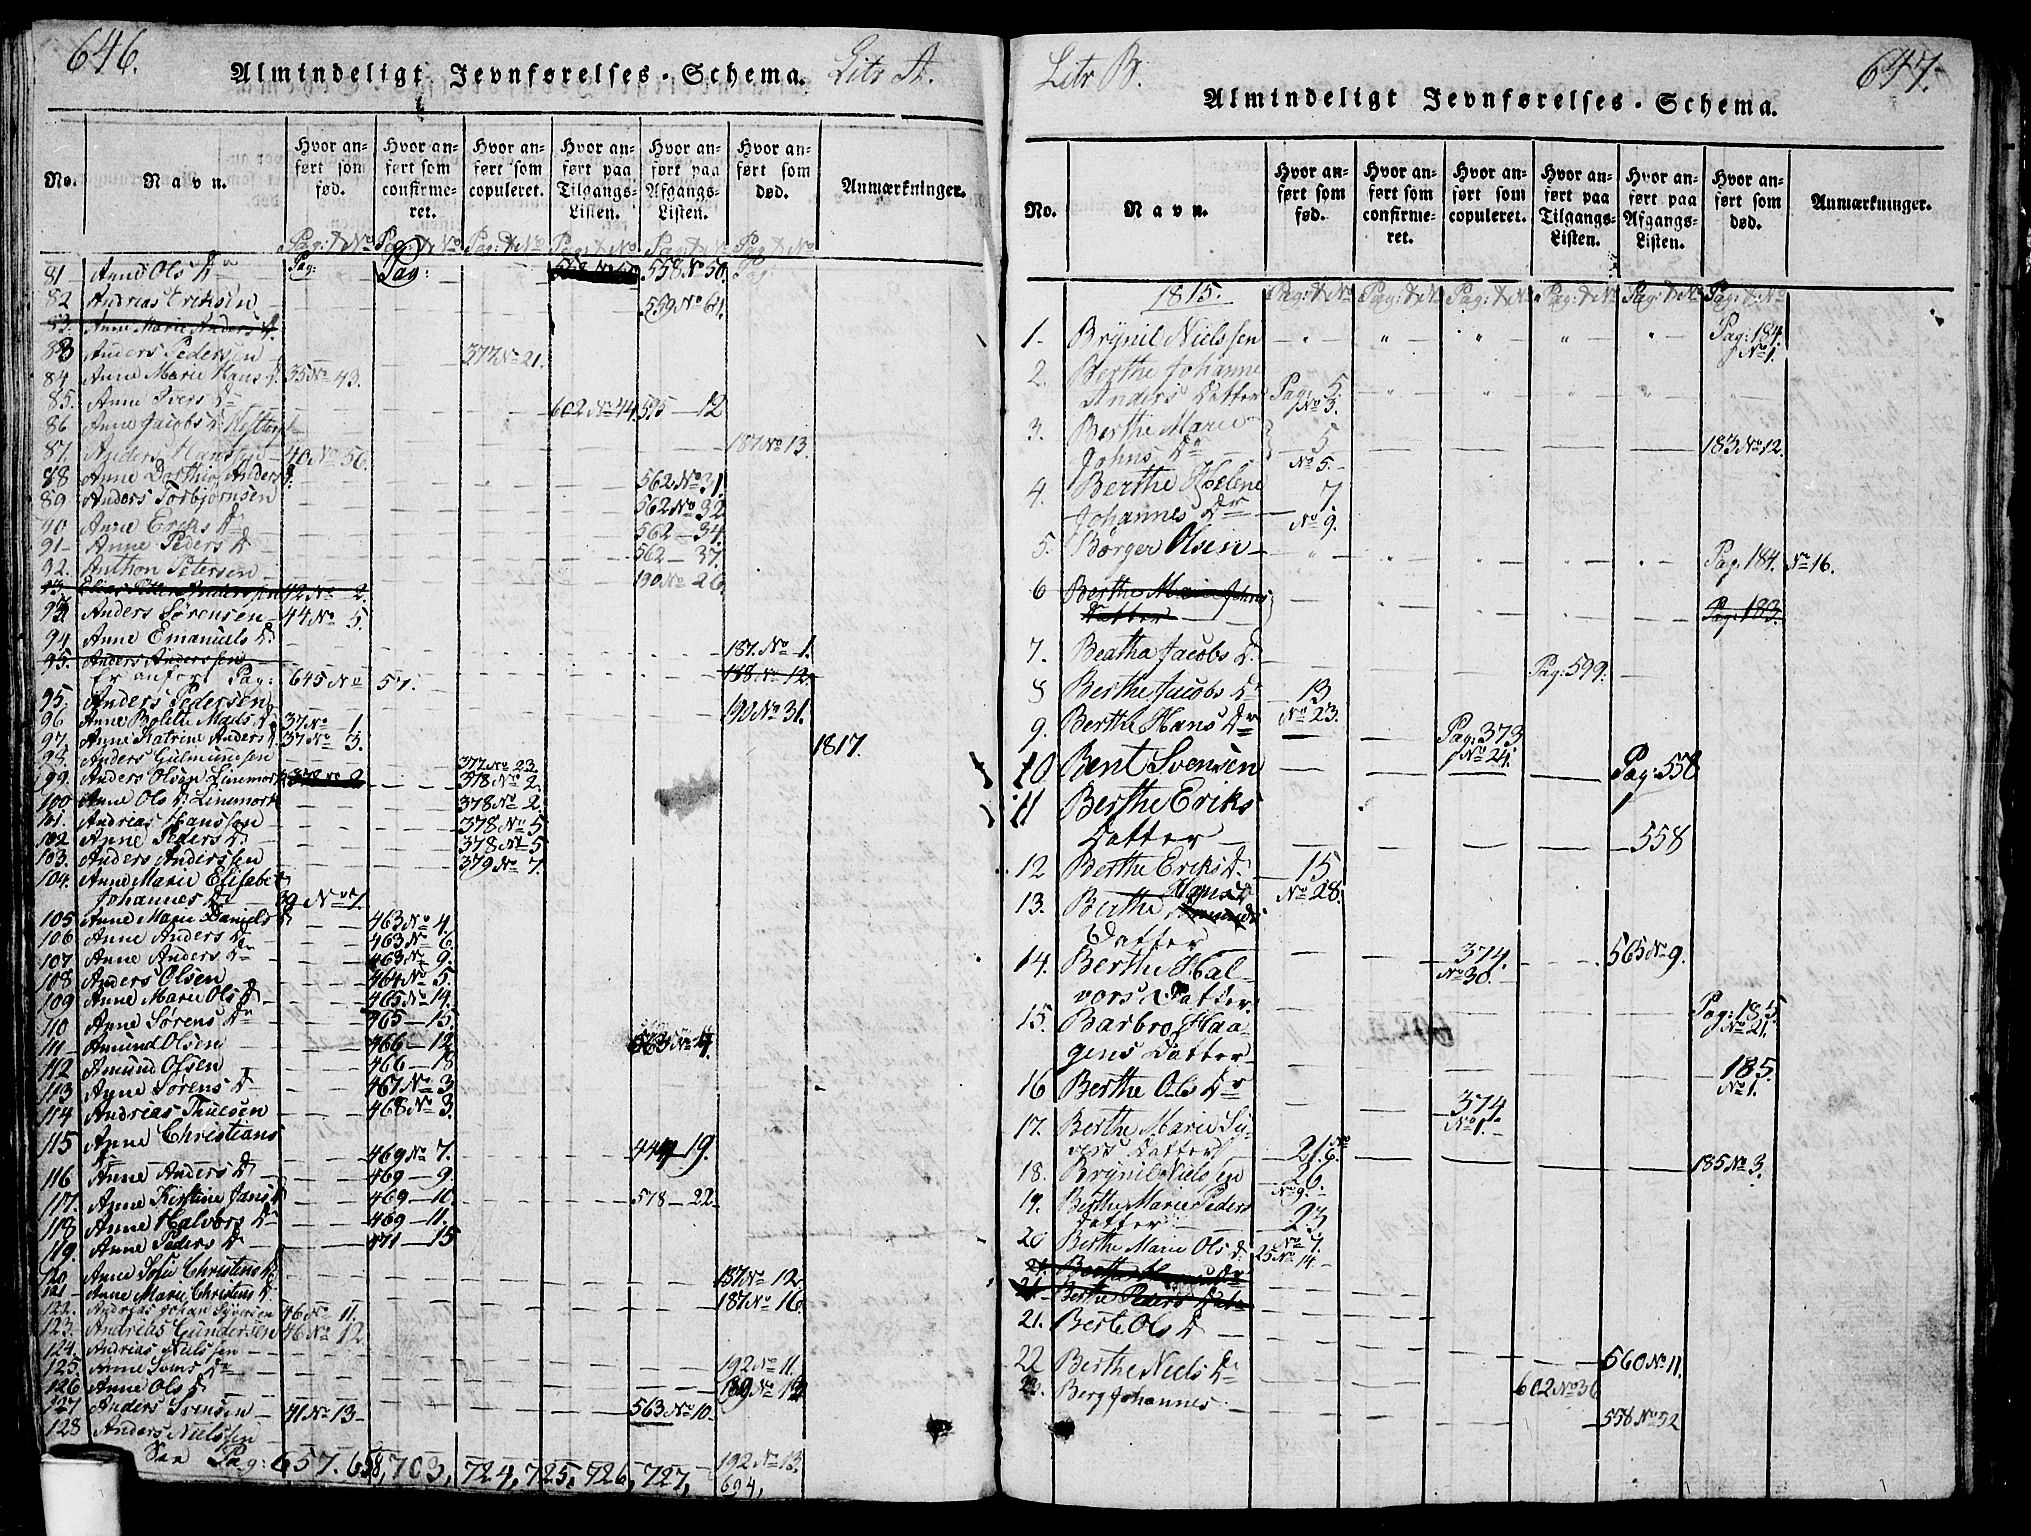 646.
Almindeligt Jevnførelses-Schema. Litr A.
No.
Navn.
Hvor anført som fød.
Hvor anført som confirmeret.
Hvor anført som copuleret.
Hvor anført paa Tilgangs-Listen.
Hvor anført paa Afgangs-Listen.
Hvor anført som død.
Anmærkninger.
Pag: & No Pag: & No Pag: & No Pag: & No Pag: & No Pag & No
81. Anne Ols Dr Pag: Pag: 558 No 50. Pag:
82 Andrias Eriksen 559 No 61.
83. Anne Marie Anders D.
83 Anders Pedersen 377 No 21.
84. Anne Marie Hans D. 35 No 43.
85. Anne Ivers Dr 602 No 44 595 — 12
86 Anne Jacobs D.
187 No 13.
87. Anders Hanssen 40 No 56.
88 Anne Dorthie Anders D. 562 No 31.
89 Anders Torbjørnsen 562 No 32
90 Anne Eriks Dr 562 — 34.
91 Anne Peders D 562 — 37.
92. Anthon Petersen 190 No 26
93. 42 No 2.
93 Anders Sørensen 44 No 5.
94 Anne Emanuels D. 187. No 1.
95. Anders Anderssen
er anført Pag: 645 No 57. 188 No 12.
95. Anders Pedersen 190 No 31.
96 Anne Bolette Mads D. 37 No 1.
97. Anne Katrine Anders D. 37 No 3. 1817.
98. Anders Gulmundsen 377 No 23.
99. Anders Olsen Linmork 372 No 2 378 No 2.
100. Anne Ols D. Linmork 378 No 2.
101. Andrias Hanssen 378 No 5
102 Anne Peders D. 378 No 5
103. Anders Anderssen 379 No 7.
104. Anne Marie Elisabet
Johannes D. 39 No 7.
105 Anne Marie Daniels D 463 No 4.
106 Anne Anders D. 463 No 6.
107 Anne Anders Dr 463 No 9.
108 Anders Olsen 464 No 5.
109 Anne Marie Ols D. 465 No 14.
110 Anne Sørens Dr 465 — 15.
111 Amund Olsen 466 — 12 563 No 4.
112 Amund Olsen 466 — 18
113 Anne Sørens D. 467 No 3
114 Andrias Thuesen 468 No 3.
115 Anne Christians
D. 469 No 7. 19.
116 Anne Anders D. 469 — 9.
117. Anne Kirstine Jans D 469 — 10. 578 — 22.
118 Anne Halvors Dr 469 — 11.
119. Anne Peders D. 471 — 15
120 Anne Sofie Christens D. 187 No 12.
121 Anne Marie Christens D. 187 No 16.
122. Andrias Johan Syversen 46 No 11.
123. Andrias Gundersen 46 No 12.
124. Andrias Nielssen
125. Anne Svens Dr 192 No 11.
126 Anne Ols D. 189 No 12
127 Anders Svensen 41 No 13 563 No 10
128 Anders Nielssen 192 No 13.
See Pag: 657. 658, 703, 724, 725, 726, 727, 694,
Litr B.
647.
Almindeligt Jevnførelses-Schema.
No.
Navn.
Hvor anført som fød.
Hvor anført som confirmeret.
Hvor anført som copuleret.
Hvor anført paa Tilgangs-Listen.
Hvor anført paa Afgangs-Listen.
Hvor anført som død.
Anmærkninger.
1815. Pag: & No Pag: & No Pag: & No Pag: & No Pag: & No Pag: & No
1. Brynil Nielssen Pag: 184. No 1.
2. Berthe Johanne
Anders Datter Pag: 5. No 3.
3. Berthe Marie
Johns Dr 5 No 5. 183 No 12.
4. Berthe Helene
Johannes Dr 7. No 9.
5. Børger Olsen Pag: 184. No 16.
6 Berthe Marie Johns
Datter Pag: 183.
7. Beatha Jacobs D. Pag: 599.
8 Berthe Jacobs D. 13 No 23.
9. Berthe Hans Dr Pag: 373 No 24.
10 Bent Svensen Pag: 558
11 Berthe Eriks
Datter 558
12 Berthe Eriks D. 15 No 28.
13. Berthe Hans D.
Datter 565 No 9.
14. Berthe Hal-
vors Datter 374. No 30.
15. Barbro Haa-
gens Datter Pag: 185 No 21.
16 Berthe Ols Dr 185. No 1.
17. Berthe Marie Sy-
vers Datter 21. No 6. 374 No 1.
18. Brynil Nielssen 26. No 9. 185 No 3.
19. Berthe Marie Peders
Datter 23 No 7.
20 Berthe Marie Ols D. 25 No 14
21.
21. Berthe Peders Datr
21. Berte Ols D
22 Berthe Niels D. 560 No 11.
23. Berg Johannes 602 No 36
558 No 52